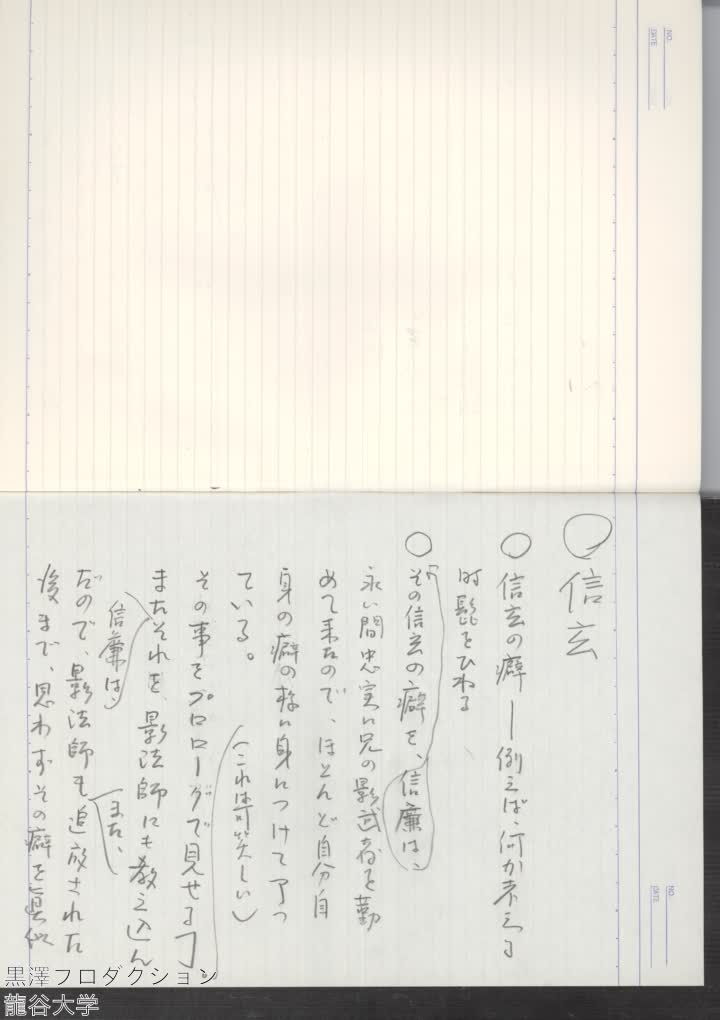 〇信玄
〇信玄の癖──例えば、何か考える
時髭をひねる
〇その信玄の癖を、信廉は、
永い間忠実に兄の影武者を勤
めて来たので、ほとんど自分自
身の癖の様に身につけて了つ
ている。
(これは可笑しい)
その事をプロローグで見せる」。
またそれを、影法師にも教え込ん
信廉は、
だので、影法師も追放された
また、
後まで、思わずその癖を真似
NO.
DATE
NO.
DATE
黒澤プロダクション
龍谷大学